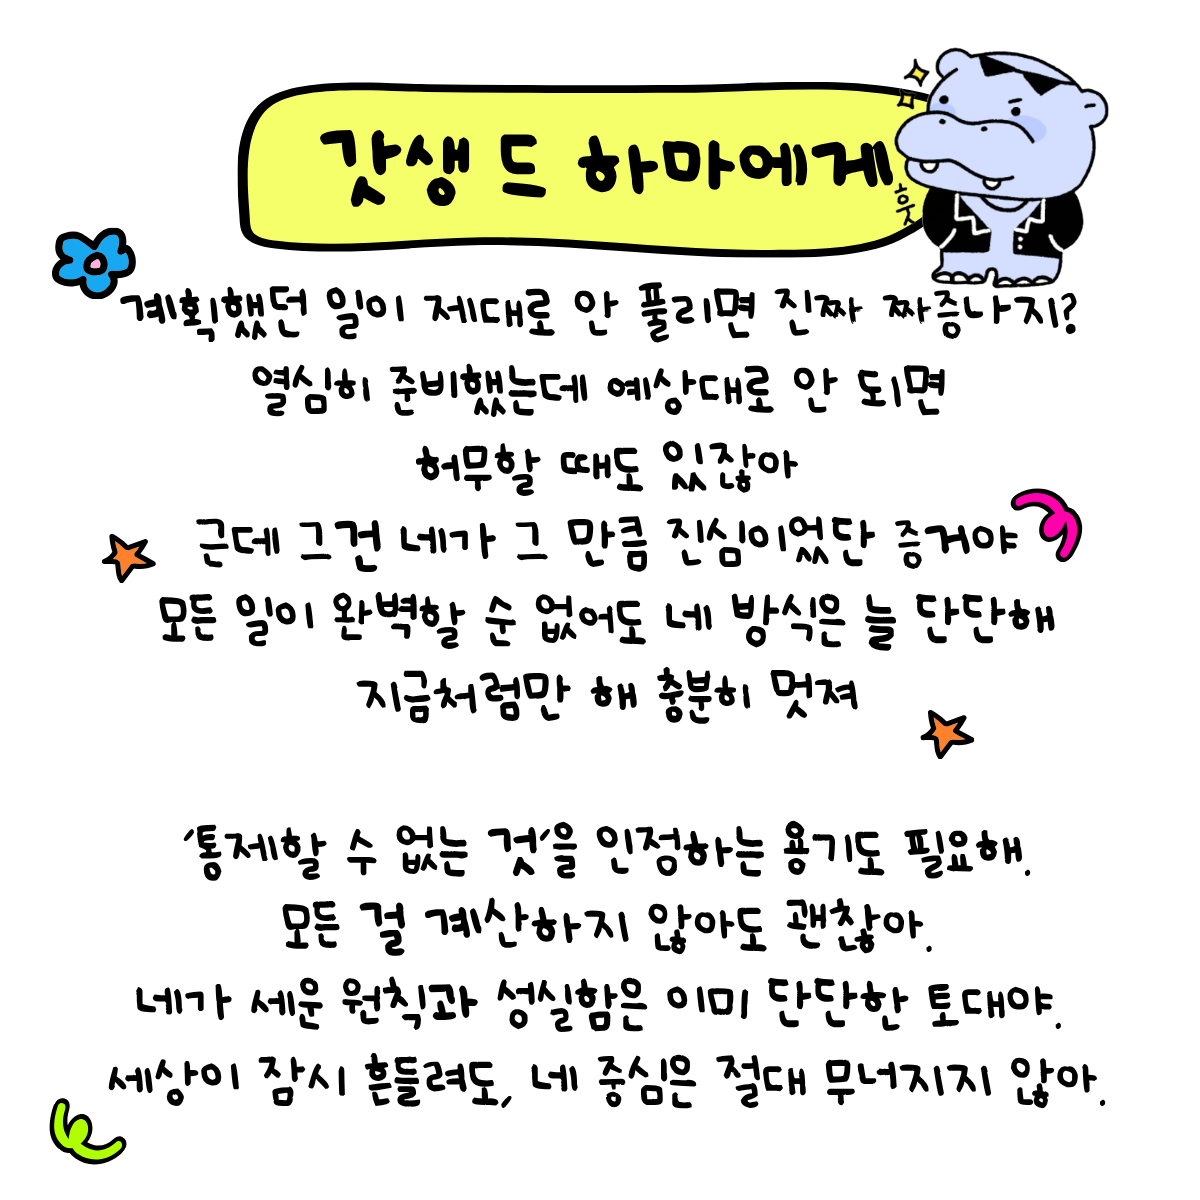 갓생 드 하마에게
훗
계획했던 일이 제대로 안 풀리면 진짜 짜증나지?
열심히 준비했는데 예상대로 안 되면
허무할 때도 있잖아
근데 그건 네가 그 만큼 진심이었단 증거야
모든 일이 완벽할 순 없어도 네 방식은 늘 단단해
지금처럼만 해 충분히 멋져
'통제할 수 없는 것'을 인정하는 용기도 필요해.
모든 걸 계산하지 않아도 괜찮아.
네가 세운 원칙과 성실함은 이미 단단한 토대야.
세상이 잠시 흔들려도, 네 중심은 절대 무너지지 않아.